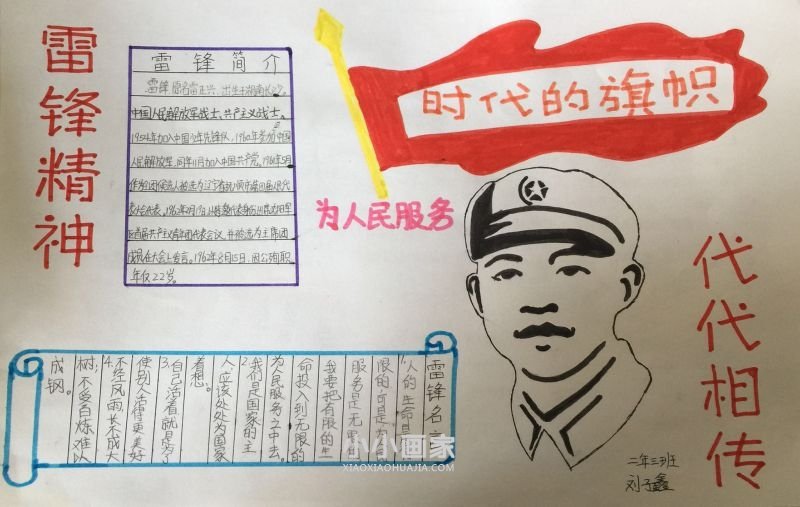 雷锋精神
雷锋简介
雷锋原名雷正兴，出生于湖南长沙。
中国人民解放军战士、共产主义战士。
1954年加入中国少年先锋队，1960年参加中国
人民解放军，同年11月加入中国共产党。1961年5月
作为
会代表。1962年2月19日
共产主义青年团代表会议，并被选为主席团
成员在大会上发言。1962年8月15日，因公殉职
年仅22岁。
时代的旗帜
为人民服务
代代相传
雷锋名
1.人的生命是
限的可是为
服务是无限
我要把有限的生
命投入到无限的
为人民服务之中去。
2.我们是国家的主
人应该处处为国家
着想。
3.自己活着就是为了
使别人活得更美好
4.不经风雨，长不成大
树；不受百炼，难以
成钢。
二年三班
刘子鑫
小小画家
XIAOXIAOHUAJIA.COM